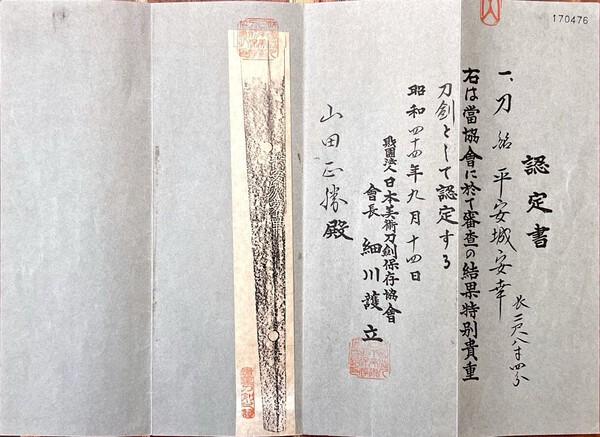 170476
認定書
一、刀 銘 平安城安幸 長二尺八寸四分
右は當協會に於て審査の結果特別貴重
刀劍として認定する
昭和四十四年九月十四日
財團法人日本美術刀劍保存協會
會長 細川護立
山田正勝殿